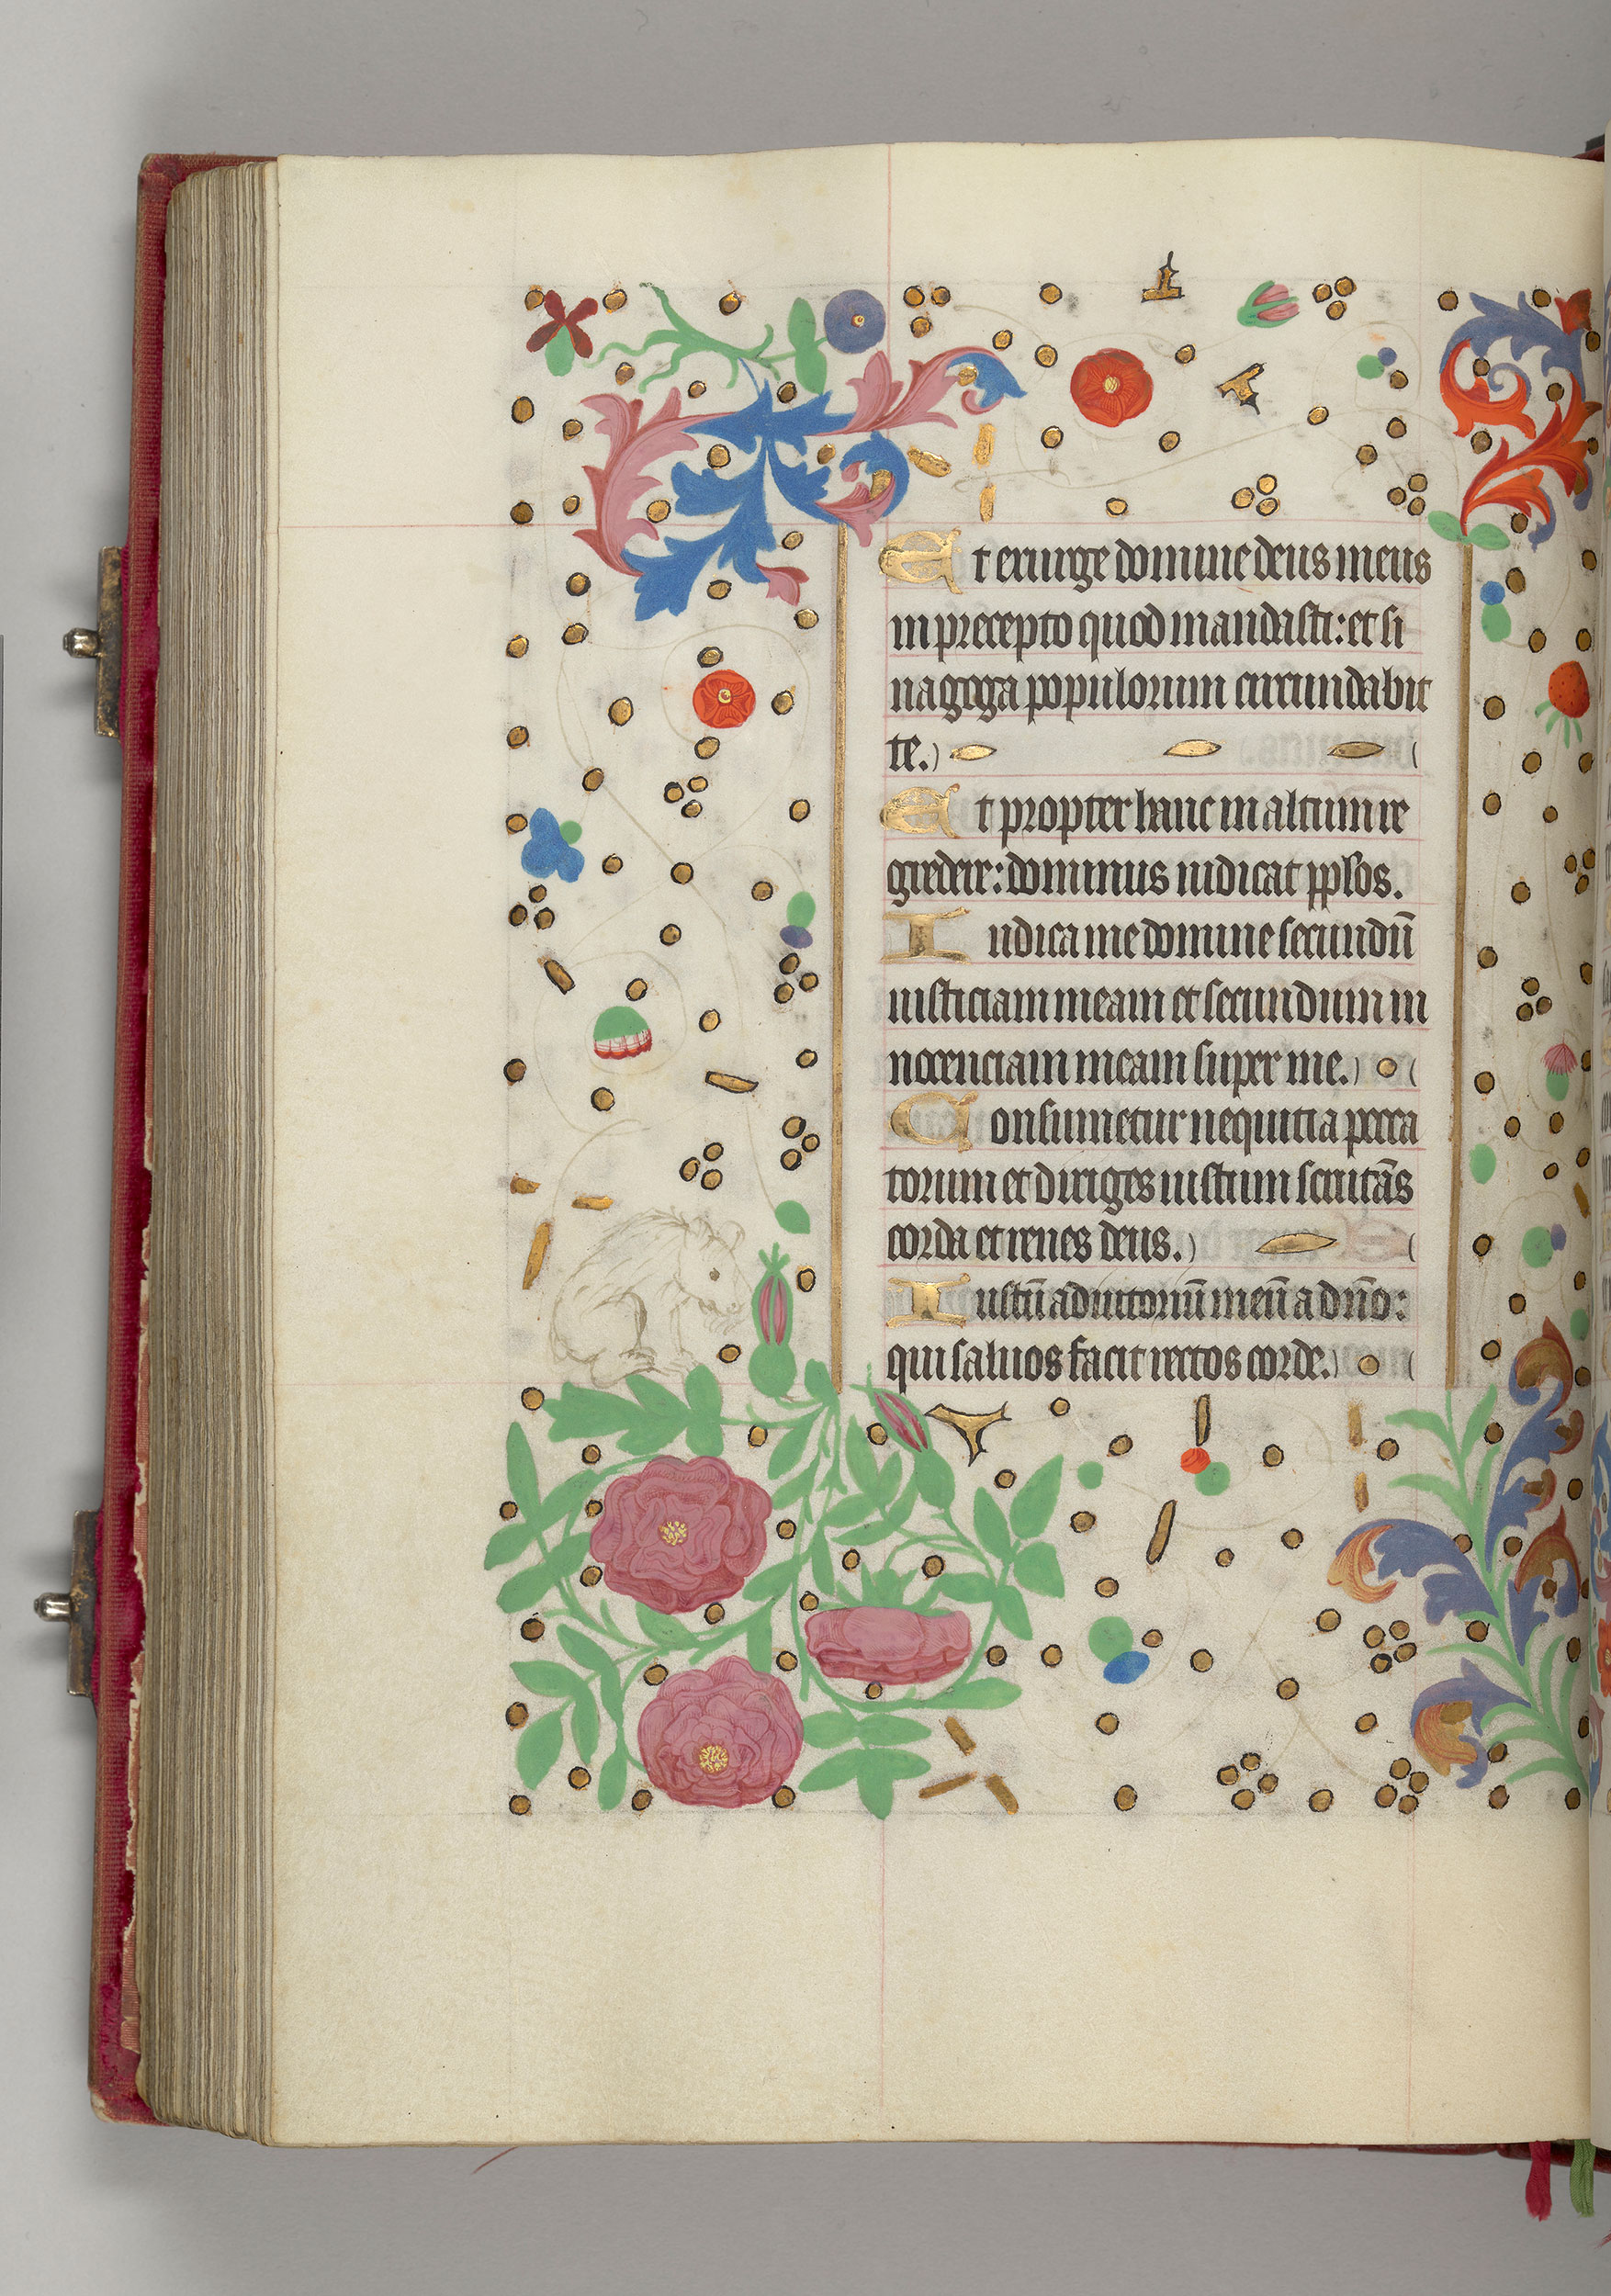 Et exurge domine deus meus
in precepto quod mandasti: et si
nagoga populorum circundabit
te.
Et propter hanc in altum re
gredere: dominus iudicat pplos.
Iudica me domine secundū
iusticiam meam et secundum in
nocenciam meam super me.
Consumetur nequitia pecca
torum et diriges iustum scrutās
corda et renes deus.
Iustū adiutoriū meū a dn̄o:
qui saluos facit rectos corde.